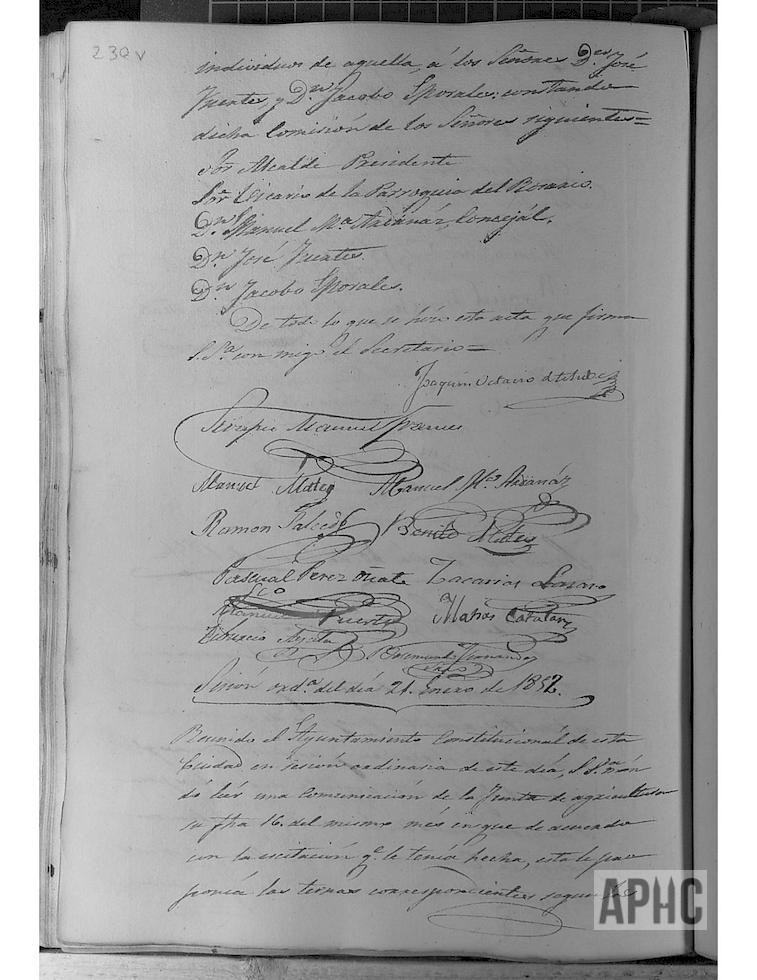 230v
individuos de aquella, á los Señores Dn. José
Fuentes y Dn. Jacobo Sporales: constando
dicha Comisión de los Señores siguientes=
Sor. Alcalde Presidente
Sor. Vicario de la Parroquia del Rosario.
Dn. Manuel Ma. Ardanáz, Concejál.
Dn. José Fuentes.
Dn. Jacobo Sporales.
De todo lo que se hizo esta acta que firma
S. Sa. con migo el Secretario=
Joaquin Octavio de
Manuel
Manuel Mateo Manuel Ma. Ardanáz
Ramon Salcedo Benito Mateo
Pascual Perez Oñate Zacarias Lázaro
Manuel Puerto Matias Catalan
Ayala Fernando
Srio
Sesión orda. del día 21. Enero de 1852.
Reunido el Ayuntamiento Constitucional de esta
Ciudad en sesión ordinaria de este día, S. Sa. man
dó leér una Comunicación de la Junta de agricultura
su fha 16. del mismo més en que de acuerdo
con la escitación qe. le tenía hecha, esta le pro
ponía las ternas correspondientes segun las
APHC